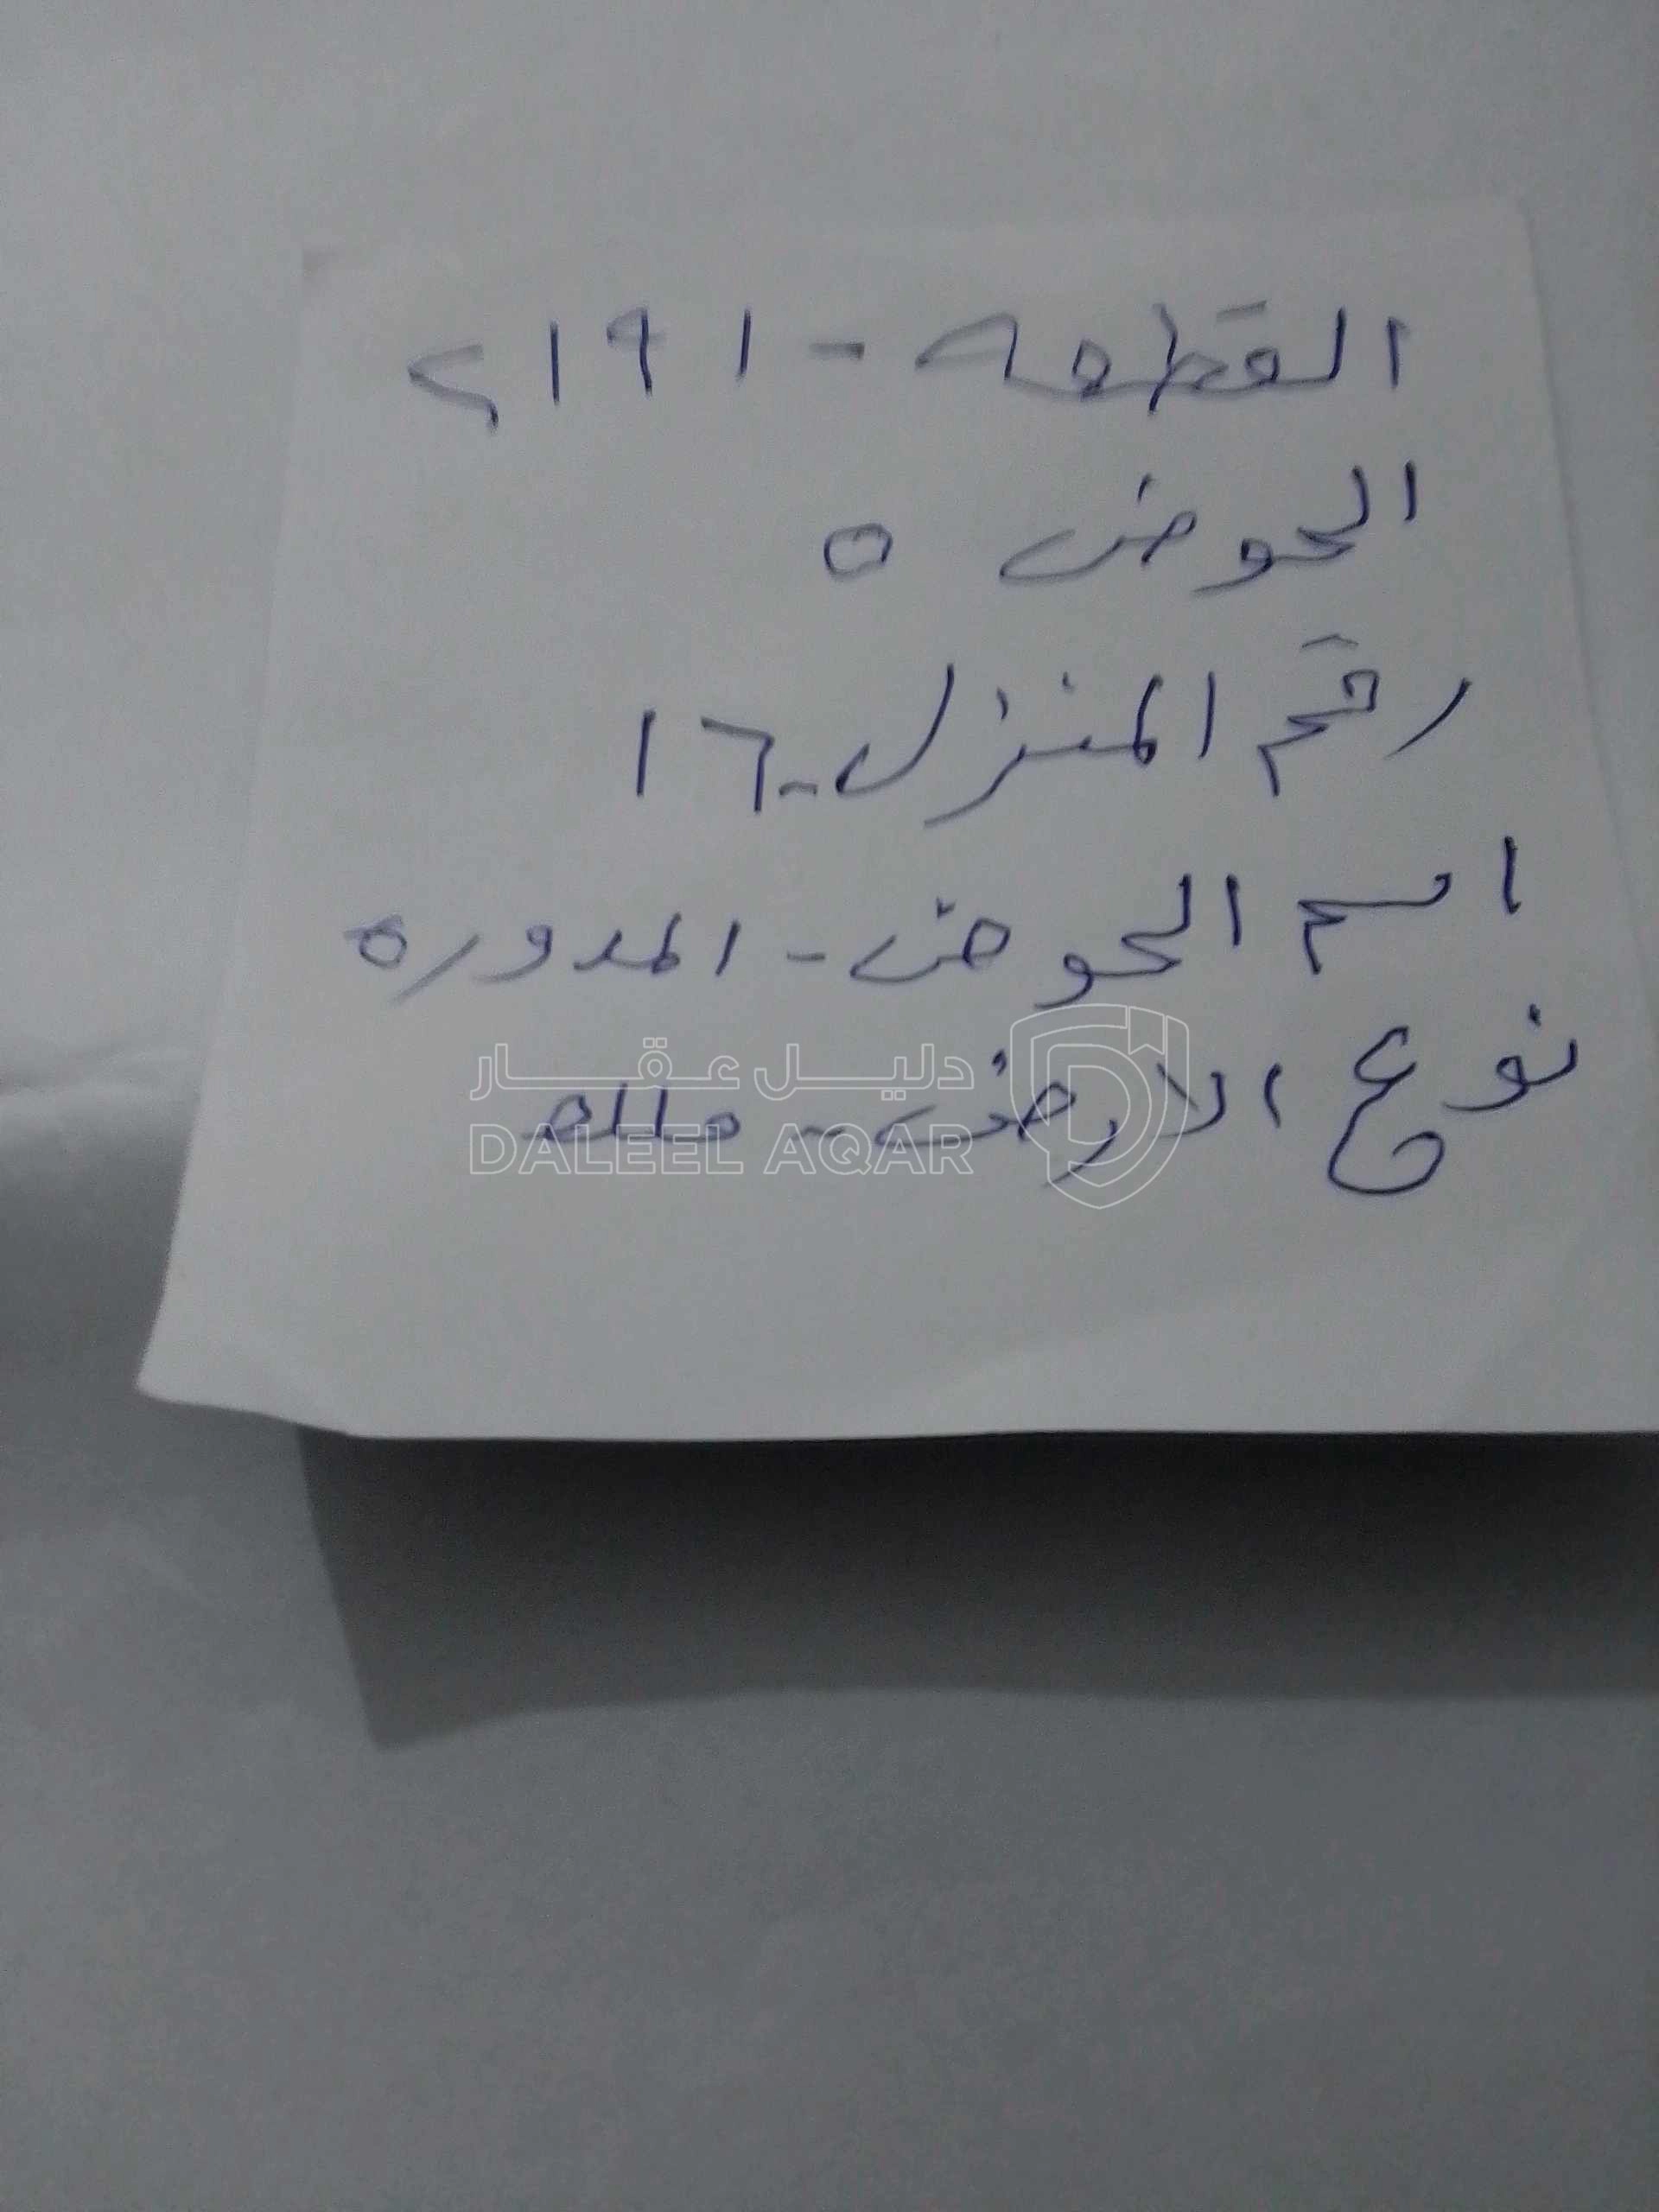 القطعه - ٢١٩١
الحوض ٥
رقم المنزل - ١٦
اسم الحوض - المدوره
نوع الارض - ملك
دليل عقار
DALEEL AQAR